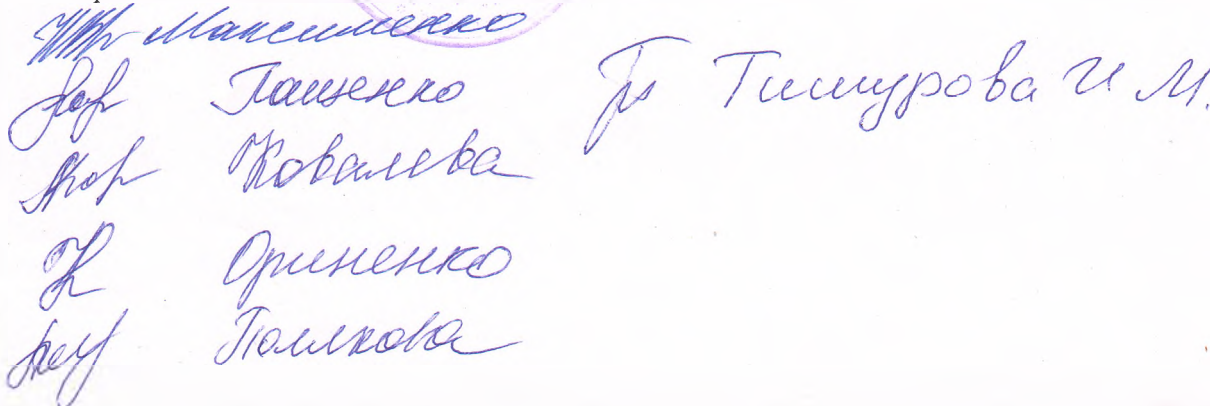 Максименко
Пащенко
Тимурова И М.
Ковалева
Ориненко
Полякова